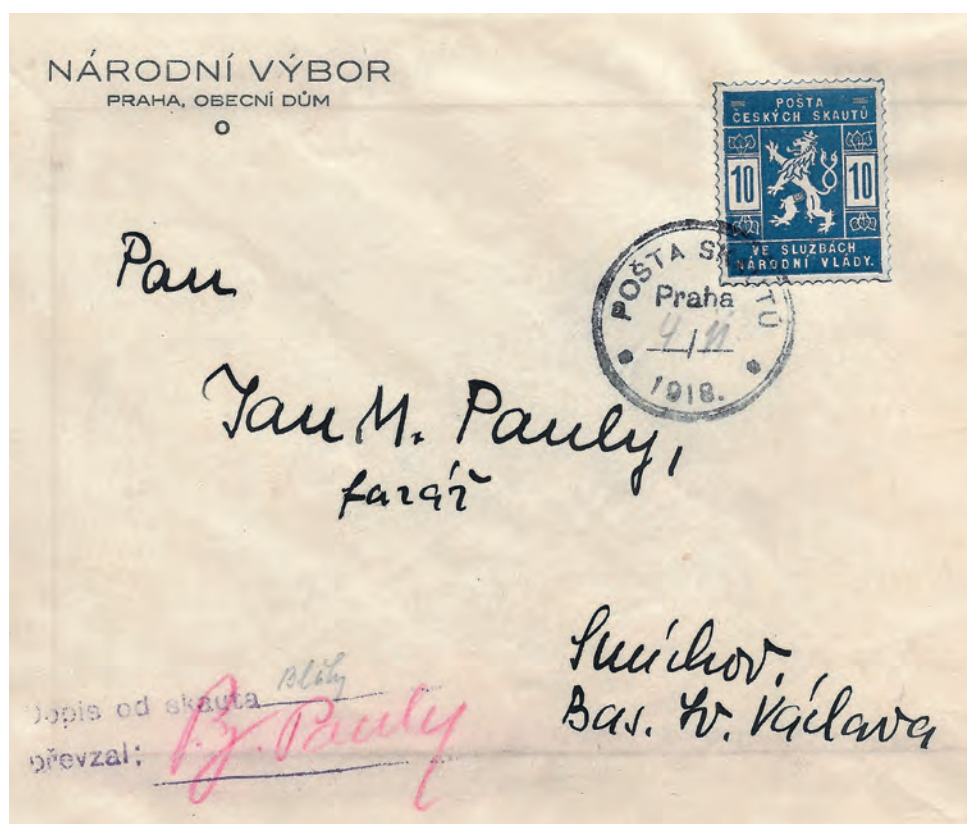 NÁRODNÍ VÝBOR
PRAHA, OBECNÍ DŮM
POŠTA
ČESKÝCH SKAUTŮ
10 10
VE SLUŽBÁCH
NÁRODNÍ VLÁDY.
POŠTA SKAUTŮ
Praha
4/11
1918.
Pan
Jan M. Pauly,
farář
Smíchov,
Bas. Sv. Václava
Dopis od skauta
převzal: Pauly